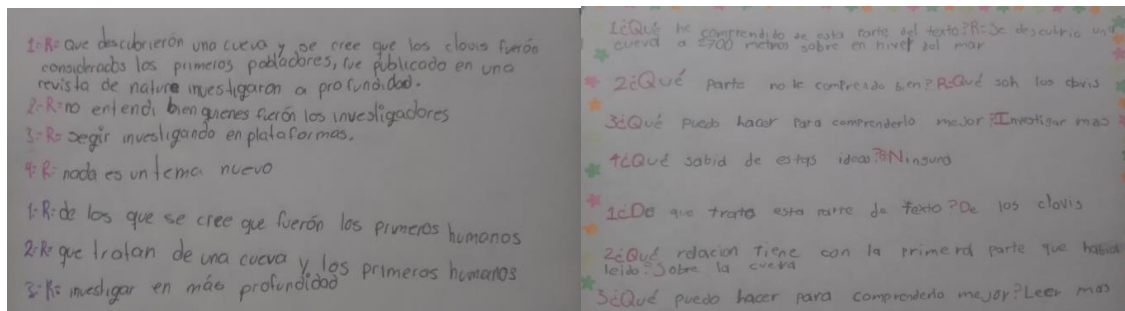 1-R= que descubrierón una cueva y se cree que los clovis fuerón
considrados los primeros pobladores, fue publicado en una
revista de nature investigaron a profundidad.
2-R= no entendi bien quienes fuerón los investigadores
3-R= segir investigando en plataformas.
4-R= nada es un tema nuevo
1-R= de los que se cree que fuerón los primeros humanos
2-R= que tratan de una cueva y los primeros humanos
3-R= investigar en más profundidad
1¿Qué he comprendido de esta parte del texto?R=Se descubrio una
cueva a 2700 metros sobre en nivel del mar
2¿Qué parte no le comprendo bien?R=Qué son los clovis
3¿Qué puedo hacer para comprenderlo mejor?Investigar mas
4¿Qué sabia de estas ideas?R=Ninguna
1¿De que trata esta parte de texto?De los clavis
2¿Qué relacion tiene con la primera parte que habia
leido?Sobre la cueva
3¿Qué puedo hacer para comprenderlo mejor?Leer mas